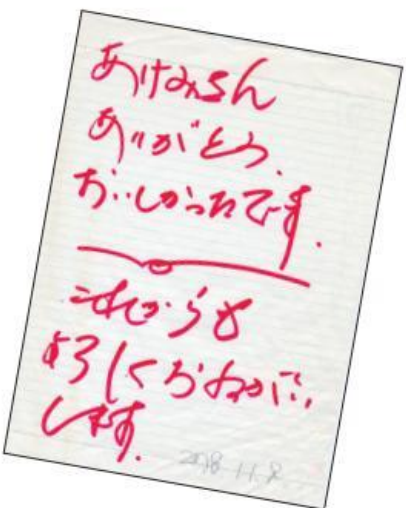 あけみさん
ありがとう.
おいしかったです.
これからも
よろしくおねがい
します.
2018.11.8